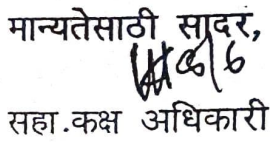 मान्यतेसाठी सादर,
सहा.कक्ष अधिकारी